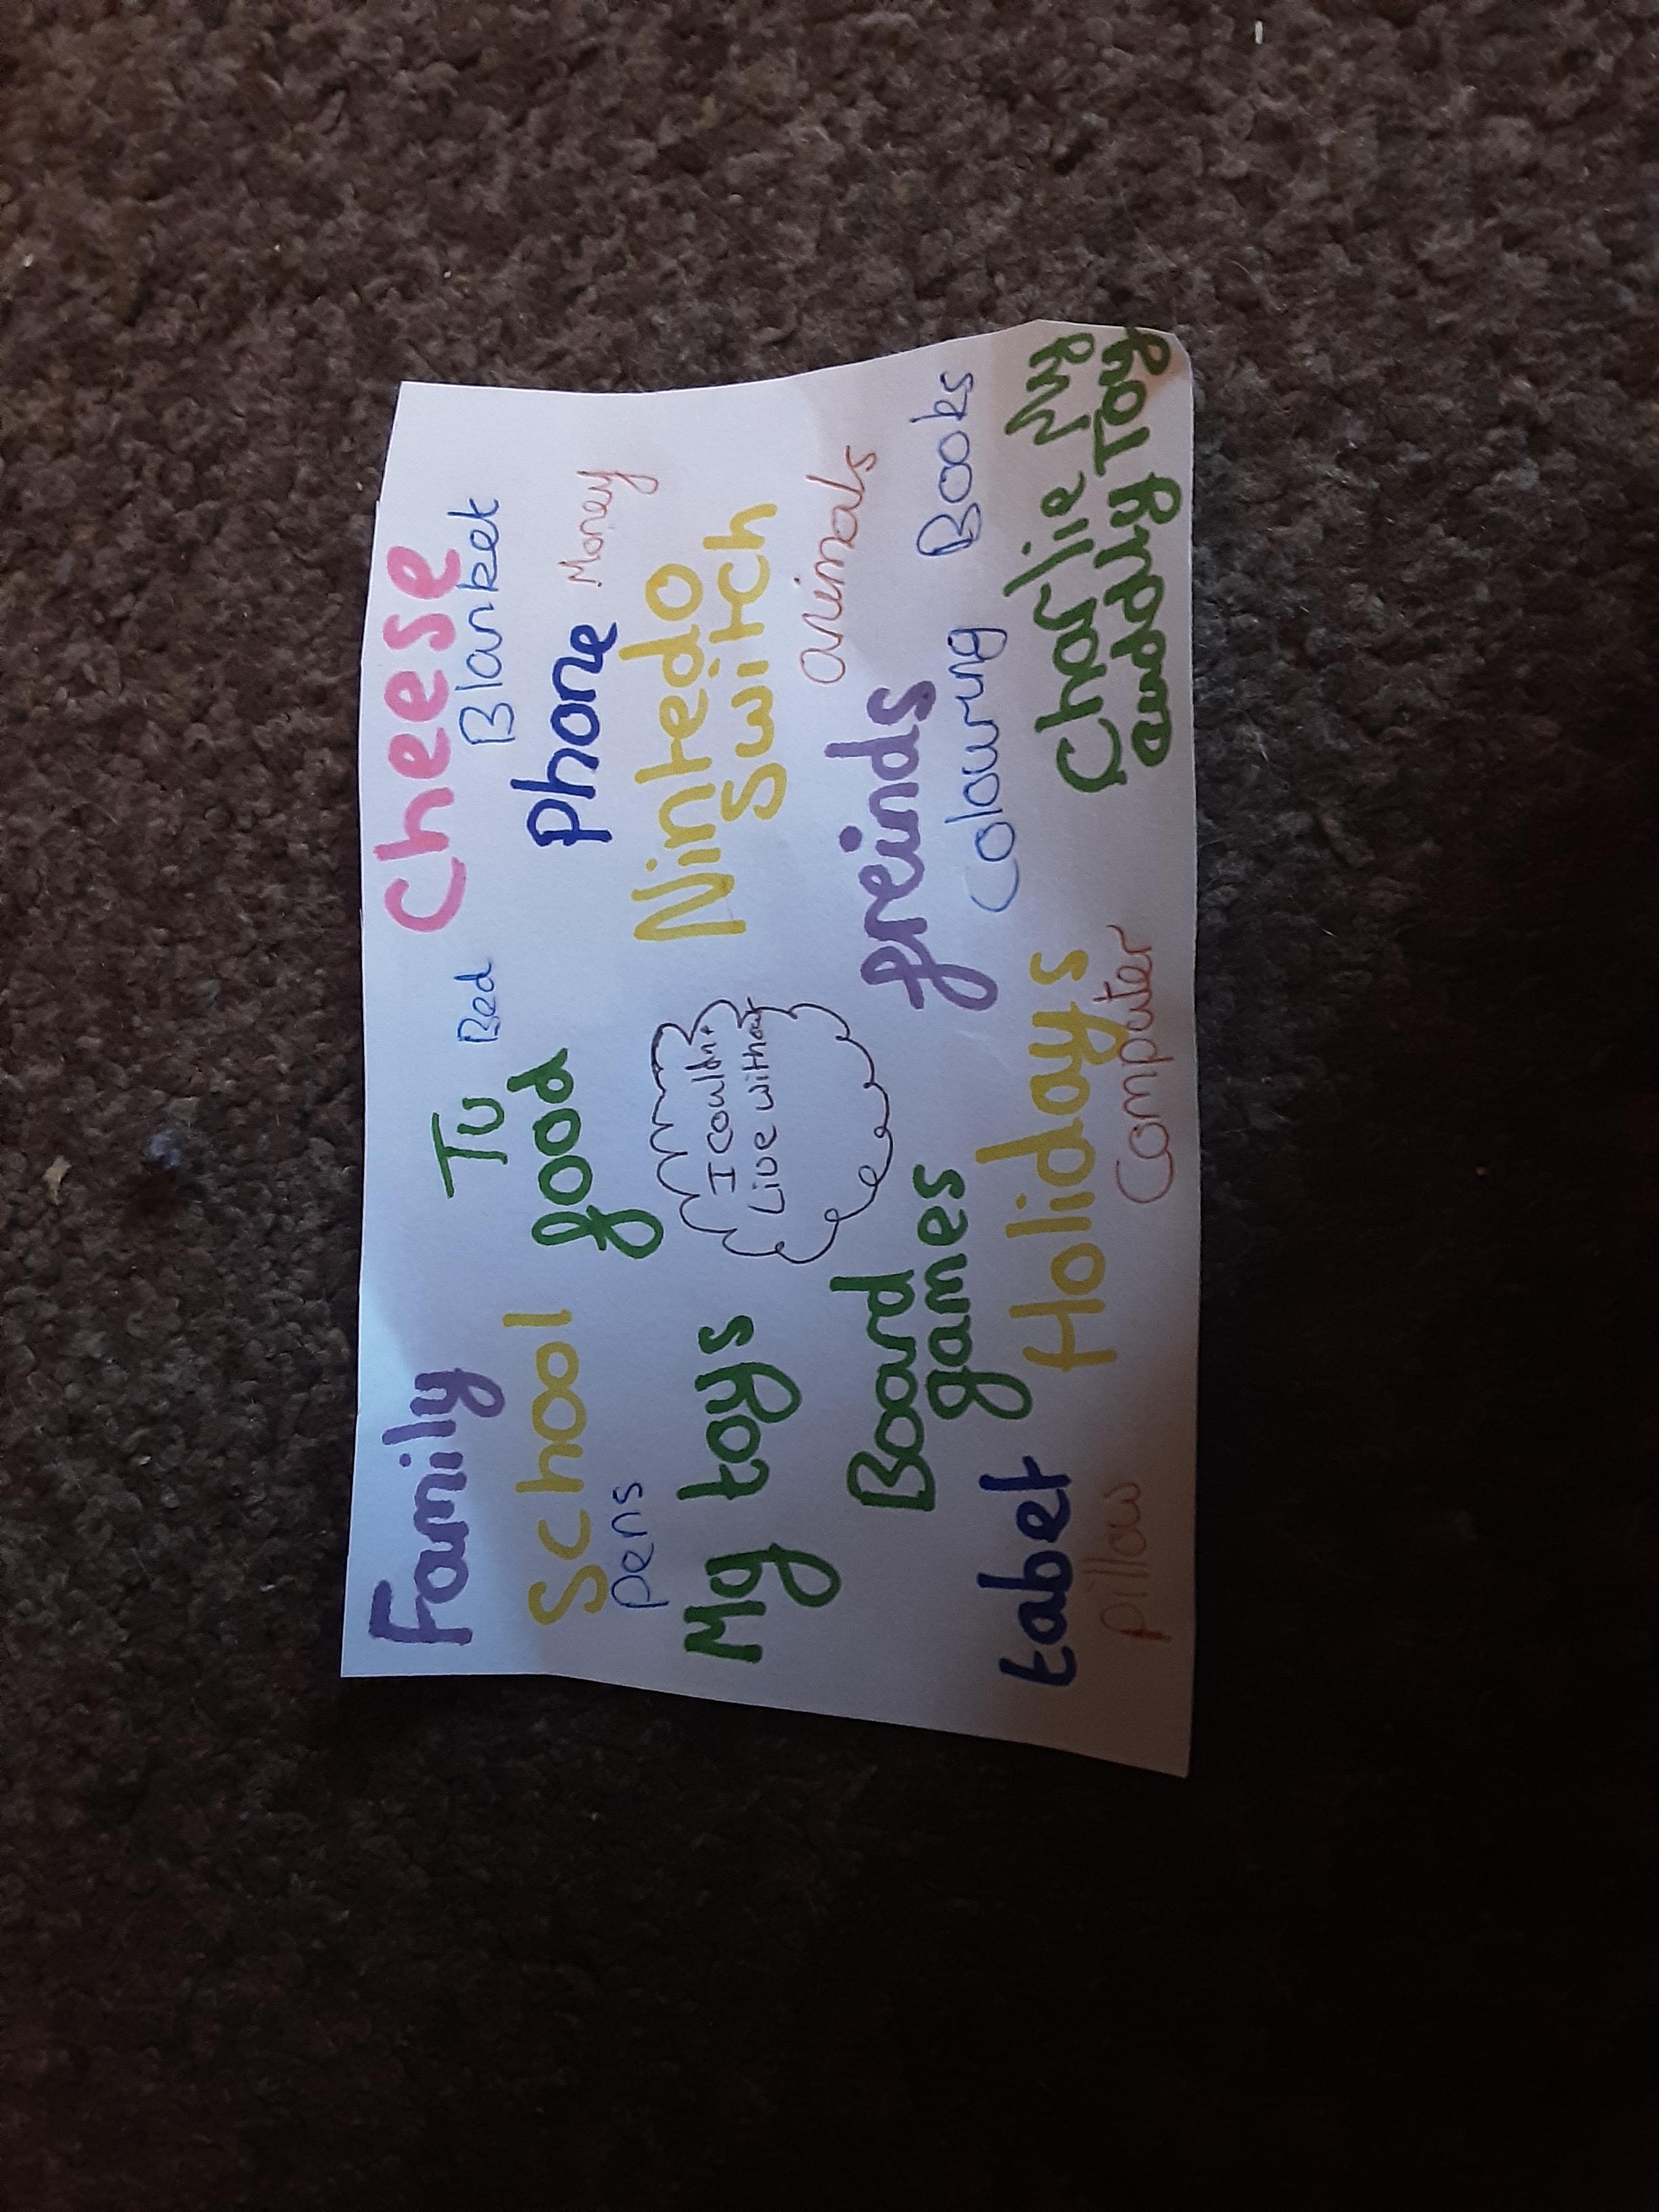 Family
Tv
Bed
Cheese
Blanket
School
food
phone
Money
pens
My toys
I couldn't
Live without
Nintedo
Switch
animals
Board
games
freinds
Colouring Books
tabet
Holidays
Charlie My
cuddly Toy
pillow
Computer